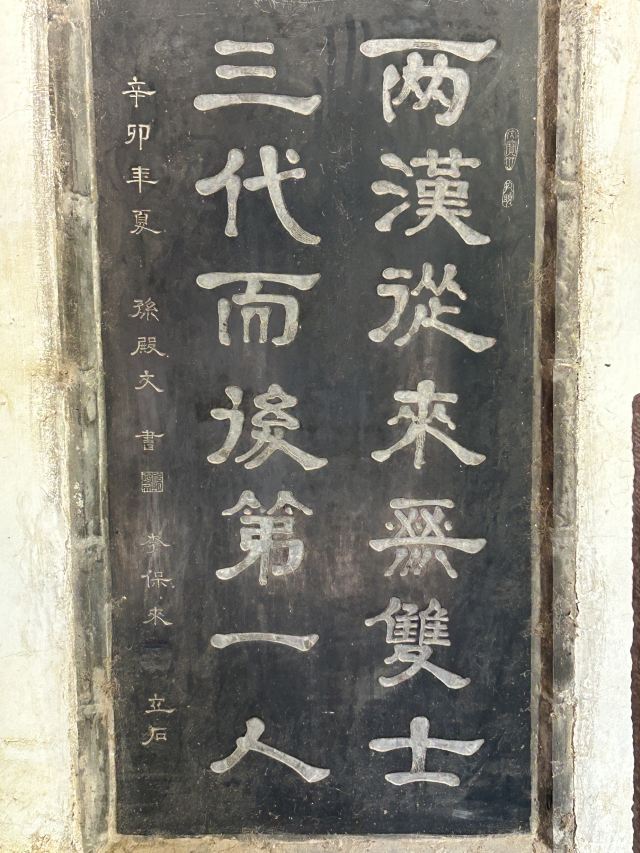 两漢從來無雙士
三代而後第一人
辛卯年夏 孫殿文 書 李保來 立石